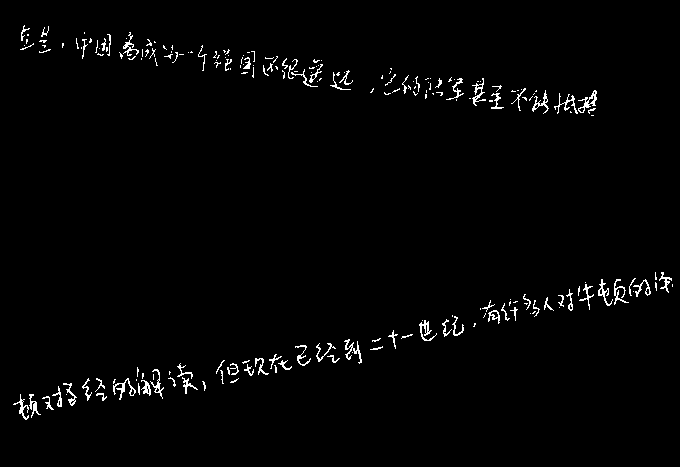 但是，中国离成为一个强国还很遥远，它的陆军甚至不能抵挡
顿对圣经的解读，但现在已经到二十一世纪，有许多人对牛顿的